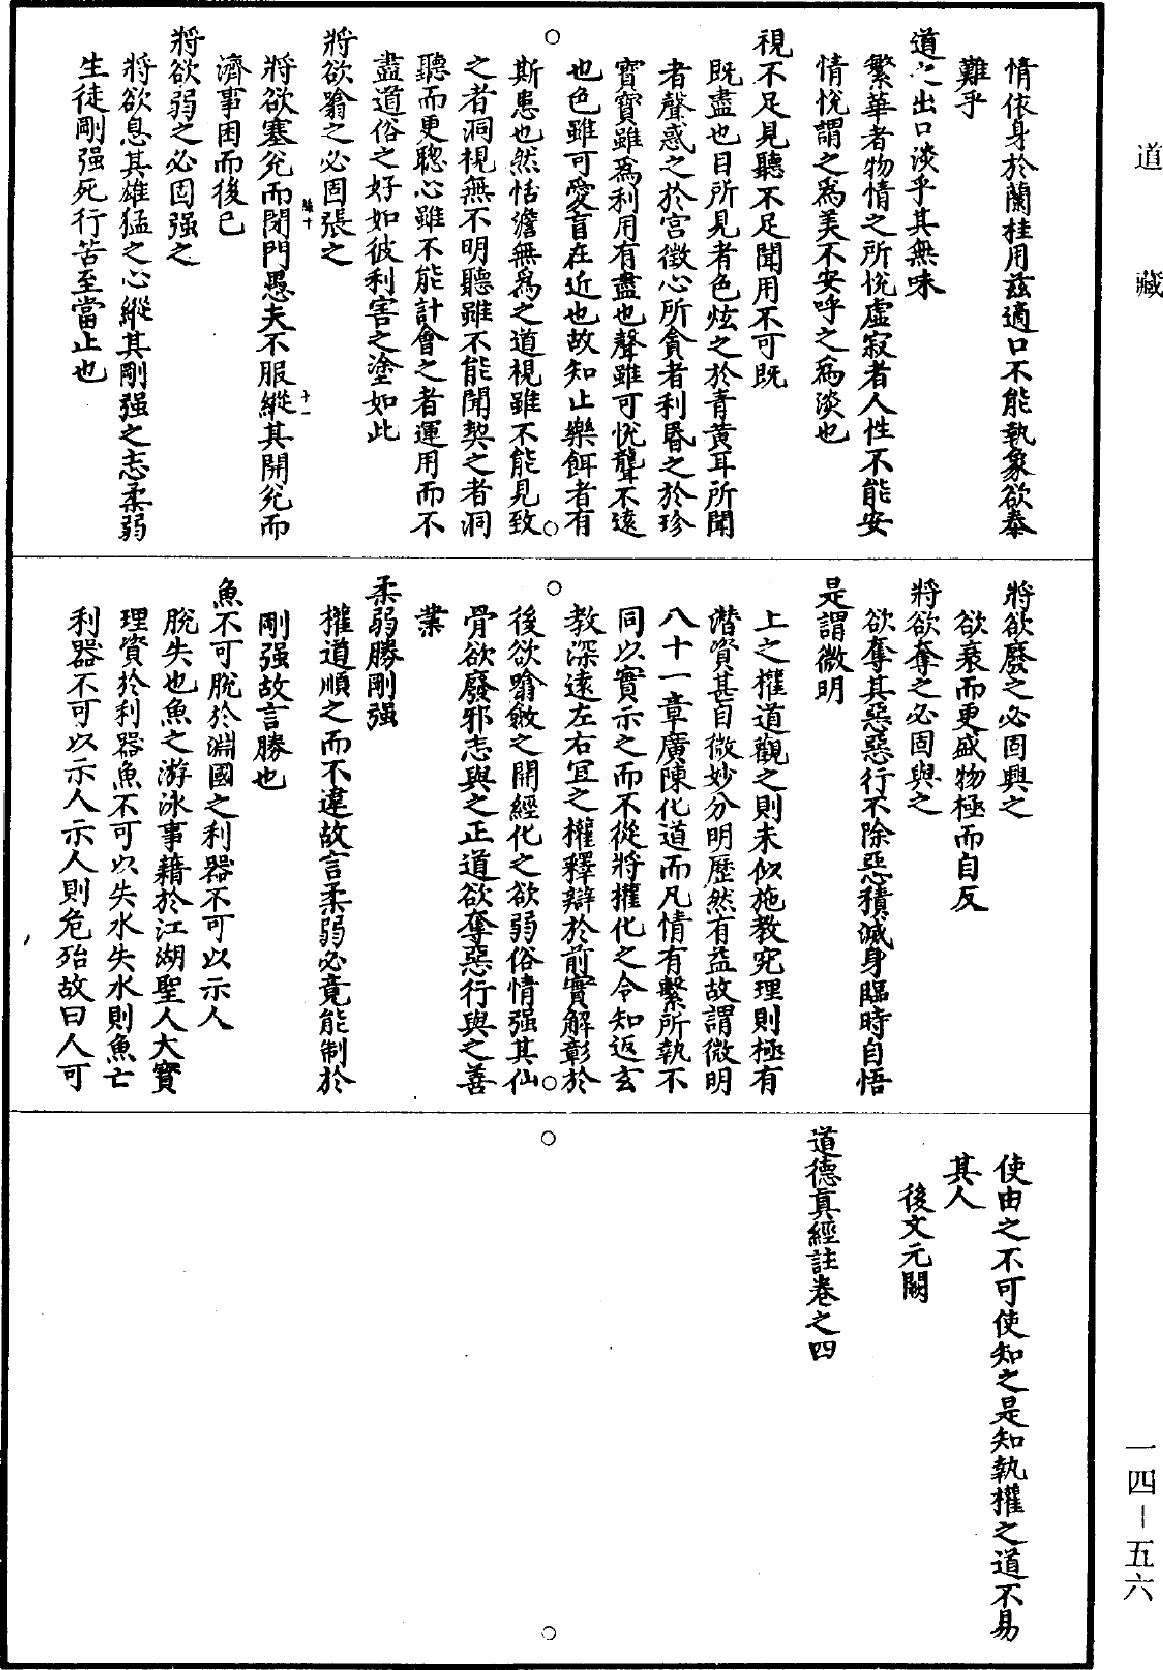 道藏
情依身於蘭桂用茲適口不能執象欲泰
難乎
道之出口淡乎其無味
繁華者物情之所悅虛寂者人性不能安
情悅謂之爲美不安呼之爲淡也
視不足見聽不足聞用不可既
既盡也目所見者色炫之於青黃耳所聞
者聲惑之於宮徵心所貪者利昬之於珍
寶寶雖爲利用有盡也聲雖可悅聾不遠
也色雖可愛盲在近也故知止樂餌者有
斯患也然恬澹無爲之道視雖不能見致
之者洞視無不明聽雖不能聞契之者洞
聽而更聦心雖不能計會之者運用而不
盡道俗之好如彼利害之塗如此
將欲翕之必固張之
十一
將欲塞兊而閉門愚夫不服縱其開兊而
濟事困而後已
將欲弱之必固强之
將欲息其雄猛之心縱其剛强之志柔弱
生徒剛强死行苦至當止也
將欲廢之必固興之
欲衰而更盛物極而自反
將欲奪之必固與之
欲奪其惡惡行不除惡積滅身臨時自悟
是謂微明
上之權道觀之則未似施教究理則極有
潛資甚自微妙分明歷然有益故謂微明
八十一章廣陳化道而凡情有繫所執不
同以實示之而不從將權化之令知返玄
教深遠左右宜之權釋辯於前實解彰於
後欲噏斂之開經化之欲弱俗情强其仙
骨欲廢邪志與之正道欲奪惡行與之善
業
柔弱勝剛强
權道順之而不違故言柔弱必竟能制於
剛强故言勝也
魚不可脫於淵國之利器不可以示人
脫失也魚之游泳事藉於江湖聖人大寶
理資於利器魚不可以失水失水則魚亡
利器不可以示人示人則危殆故曰人可
使由之不可使知之是知執權之道不易
其人
後文元闕
道德真經註卷之四
一四－五六